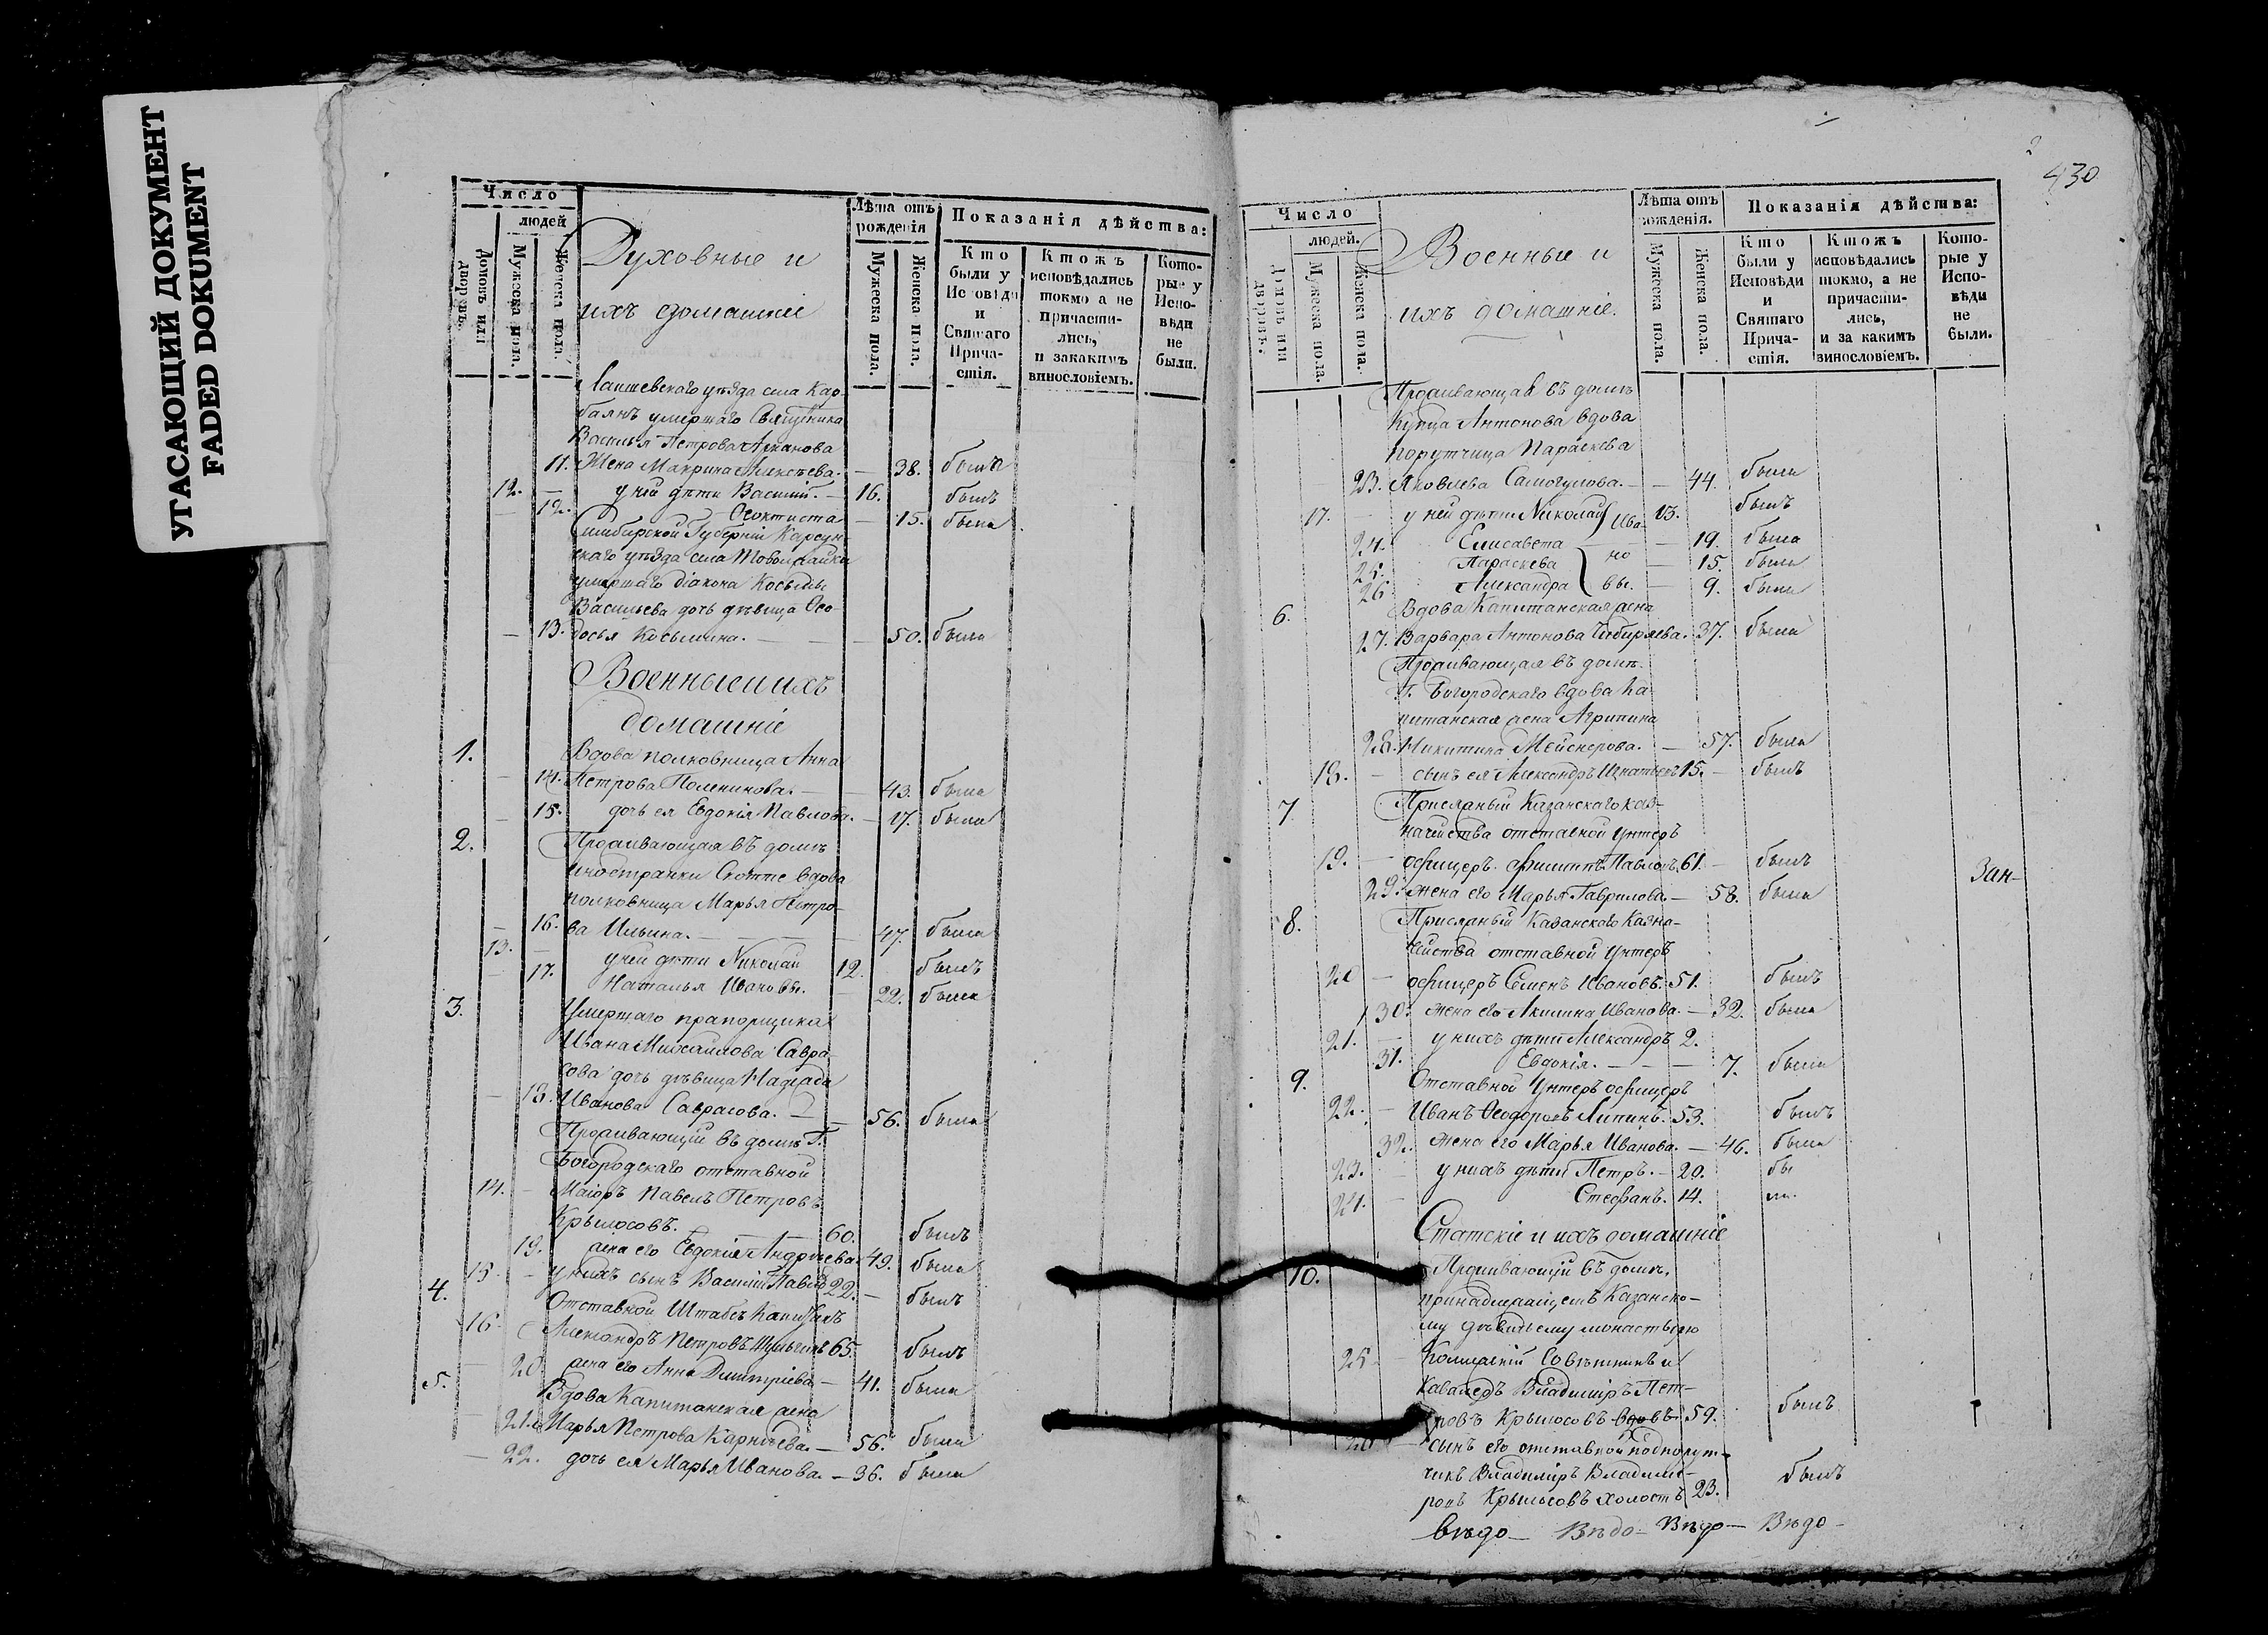 УГАСАЮЩИЙ ДОКУМЕНТ
FADED DOKUMENT
Число
людей
Домовъ или дворовъ.
Мужеска пола.
Женска пола.
Духовные и
ихъ домашніе
Лѣта отъ рожденія
Мужеска пола.
Женска пола.
Показанія дѣйства:
Кто были у Исповѣди и Святаго Причастія.
Ктожъ исповѣдались токмо а не причастились, и закакимъ винословіемъ.
Которые у Исповѣди не были.
Лаишевскаго уѣзда села Кар-
баянъ умершаго Священника
Василья Петрова
11. Жена Макрина Алексѣева. — 38. была
12. — у ней дѣти Василій. — 16. былъ
— 12. Ѳеоктиста — 15. была
Симбирской Губерніи Карсун-
скаго уѣзда села
умершаго діакона Косьмы
Васильева дочь дѣвица Ѳео-
— 13. досья Косьмина. — — 50. была
Военные и ихъ
домашніе
1. Вдова полковница Анна
— 14. Петрова Поленинова. — — 43. была
— 15. дочь ея Евдокія Павлова. — 17. была
2. Проживающая въ домѣ
иностранки Скотте вдова
полковница Марья Петро-
— 16. ва Ильина. — — 47. была
13. — у ней дѣти Николай 12. былъ
— 17. Наталья Ивановы. 22. была
3. Умершаго прапорщика
Ивана Михайлова Савра-
сова дочь дѣвица Надежда
— 18. Иванова Саврасова. — — 56. была
Проживающій въ домѣ Г.
Богородскаго отставной
14. — Маіоръ Павелъ Петровъ
Крылосовъ. 60. былъ
19. жена его Евдокія Андреева. 49. была
15. — у нихъ сынъ Василій Павловъ 22. — былъ
4. Отставной Штабсъ Капитанъ
16. Александръ Петровъ 65. былъ
— 20. жена его Анна Дмитріева — 41. была
5. Вдова Капитанская жена
— 21. Марья Петрова Карпѣева. — 56. была
— 22. дочь ея Марья Иванова. — 36. была
2
430
Число
людей.
Домовъ или дворовъ.
Мужеска пола.
Женска пола.
Военные и
ихъ домашніе.
Лѣта отъ рожденія.
Мужеска пола.
Женска пола.
Показанія дѣйства:
Кто были у Исповѣди и Святаго Причастія.
Ктожъ исповѣдались токмо, а не причастились, и за какимъ винословіемъ.
Которые у Исповѣди не были.
Проживающая въ домѣ
Купца Антонова вдова
порутчица Параскева
23. Яковлева Самогулова. — — 44. была
17. — у ней дѣти Николай Ива- 13. былъ
24. Елисавета — 19. была
25. Параскева но — 15. была
26. Александра вы. — 9. была
6. Вдова Капитанская жена
27. Варвара Антонова Чибиряева. 37. была
Проживающая въ домѣ
Г. Богородскаго вдова Ка-
питанская жена Агрипина
28. Никитина Мейснерова. — 57. была
18. — сынъ ея Александръ Игнатьевъ 15. — былъ
7. Присланый Казанскаго каз-
начейства отставной Унтеръ
19. — офицеръ Филиппъ Павловъ. 61. — былъ
29. жена его Марья Гаврилова. — 58. была
Зан-
8. Присланый Казанскаго Казна-
чейства отставной Унтеръ
20 — офицеръ Семенъ Ивановъ. 51. былъ
30. жена его Акилина Иванова. — 32. была
21. — у нихъ дѣти Александръ 2.
31. Евдокія. — — 7. были
9. Отставной Унтеръ офицеръ
22. — Иванъ Ѳеодоровъ Липинъ. 53. былъ
32. жена его Марья Иванова. — 46. была
23. — у нихъ дѣти Петръ. — 20. бы
24. — Стефанъ. 14. ли.
Статскіе и ихъ домашніе
10. Проживающій въ домѣ,
принадлежащемъ Казанско-
му дѣвичьему монастырю
25. — Коллежскій Совѣтникъ и
Кавалеръ Владиміръ Пет-
ровъ Крылосовъ вдовъ 59. былъ
26 — сынъ его отставной подпорут-
чикъ Владиміръ Владими-
ровъ Крылосовъ холостъ 23. былъ
вѣдо — Вѣдо — Вѣдо — Вѣдо —